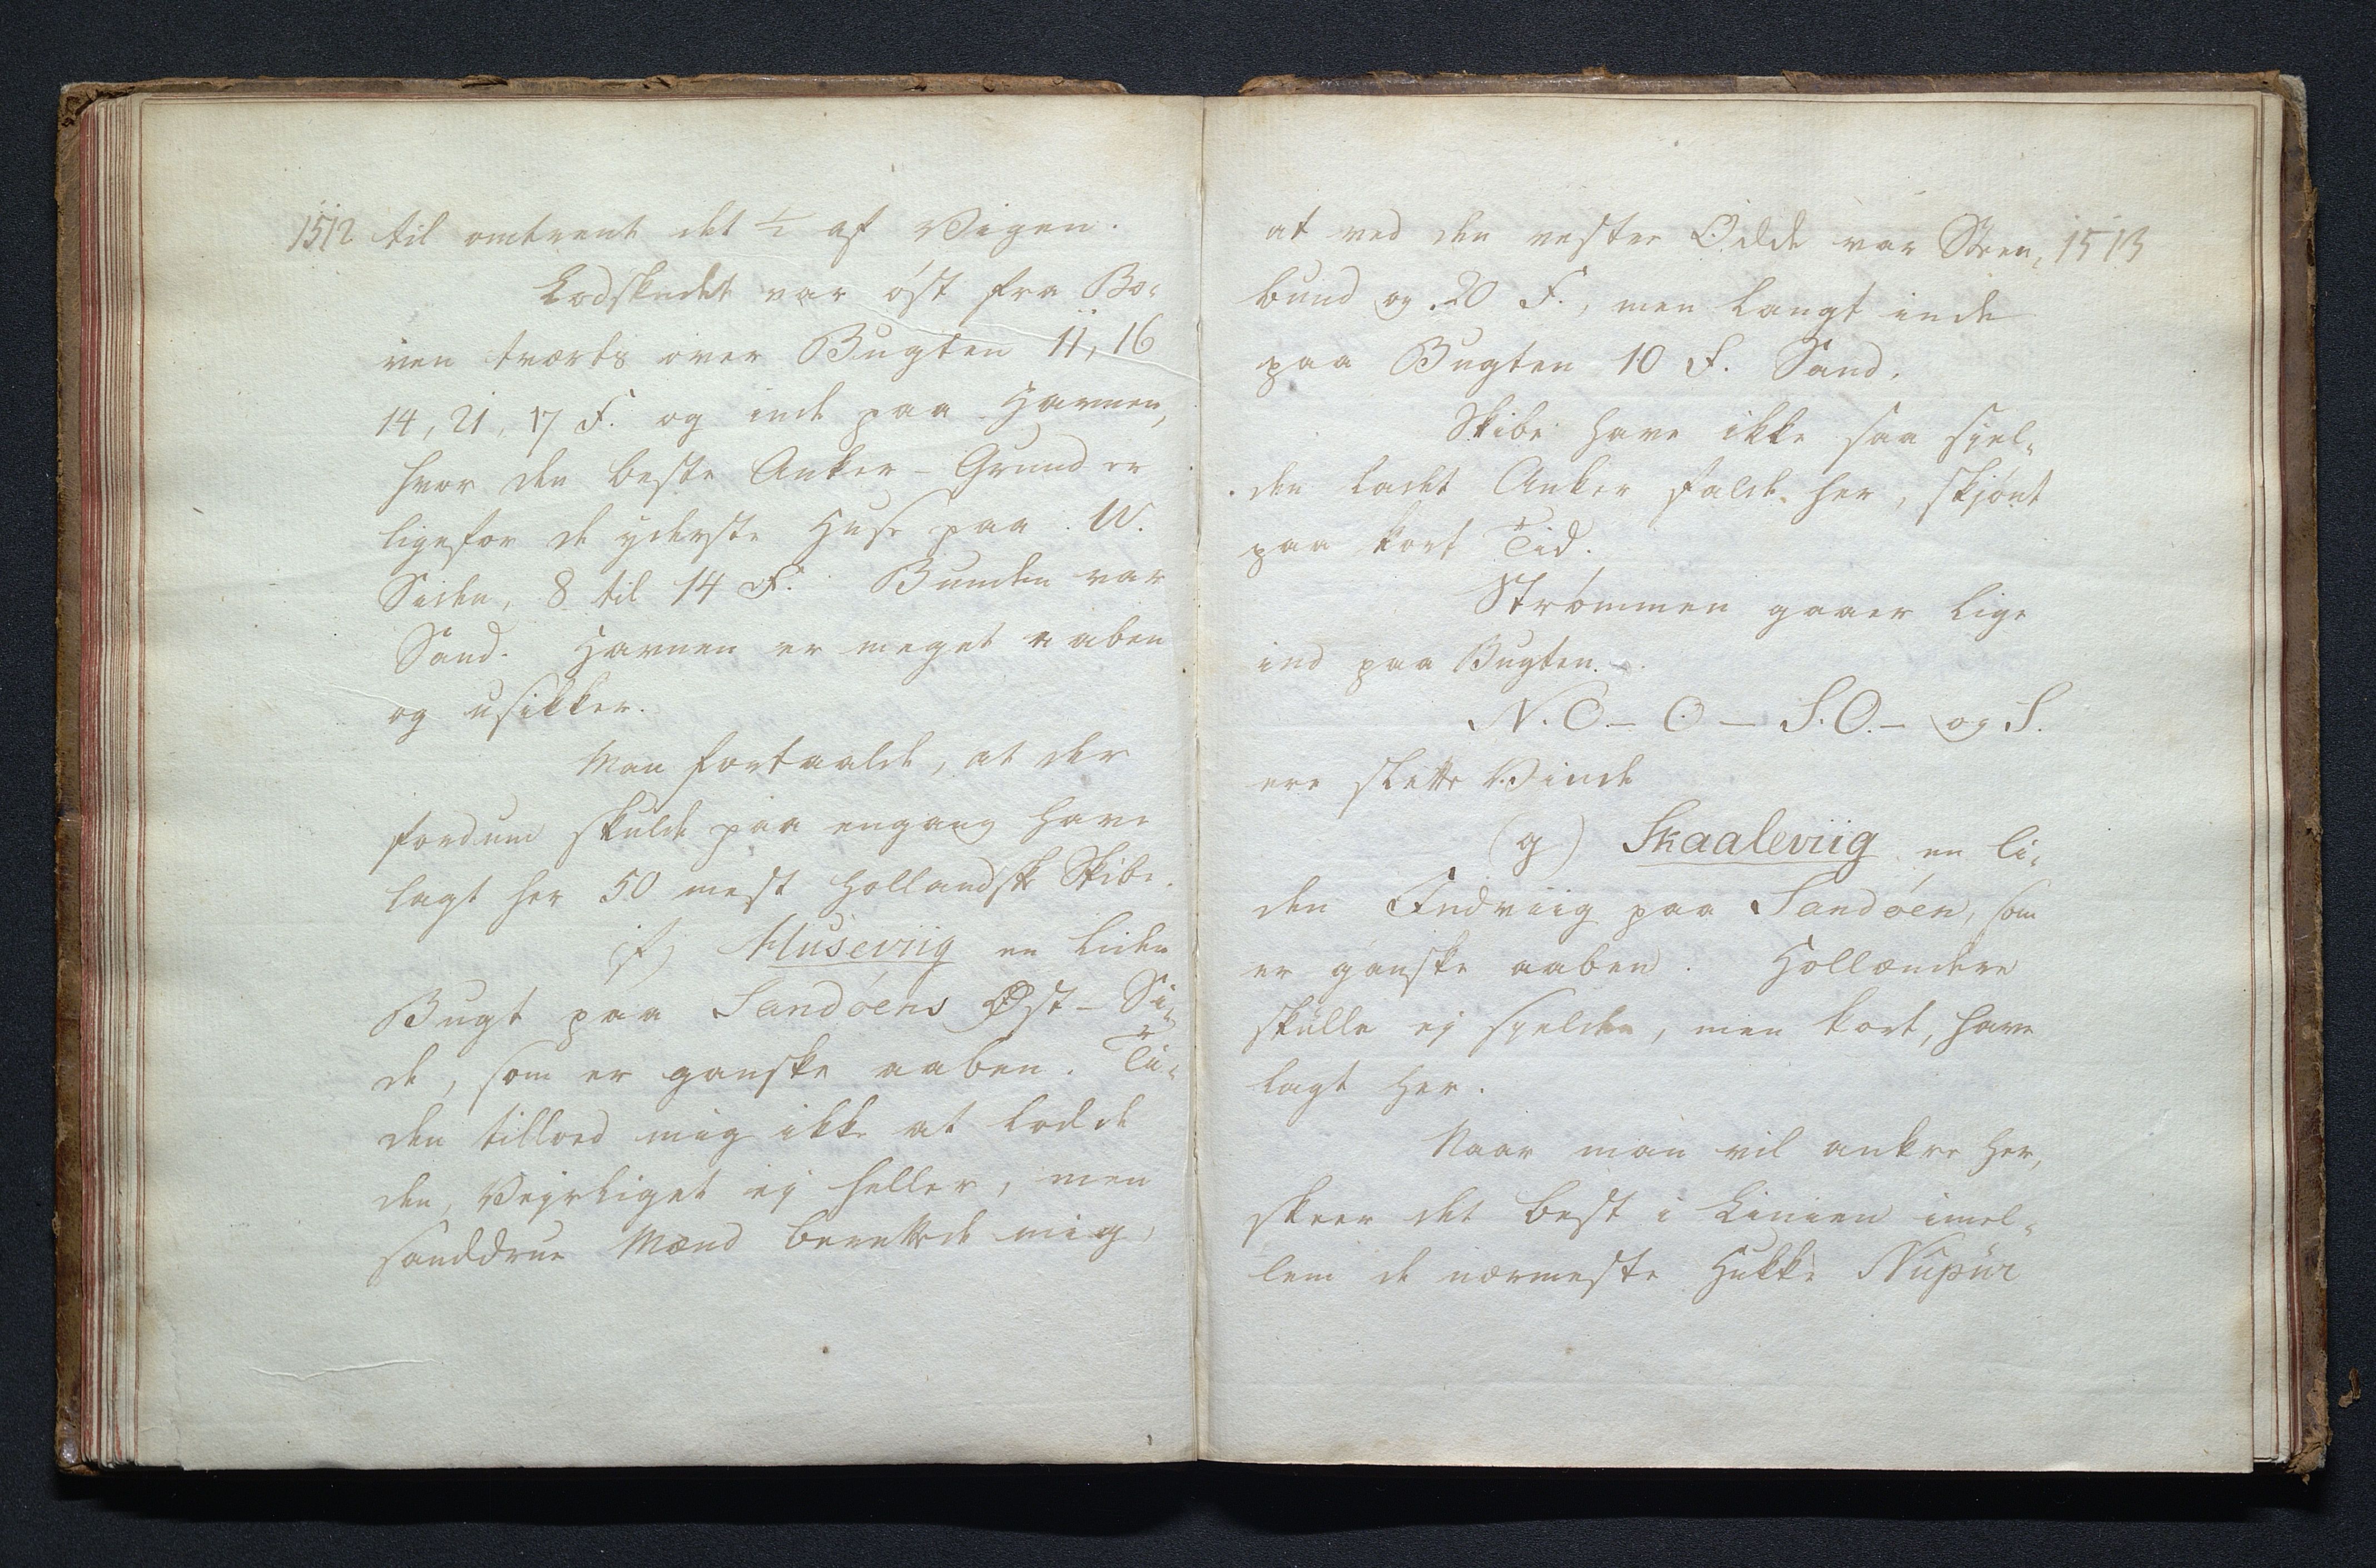 1512 til omtrent det ½ af Viigen.
Lodskudet var øst fra Bo-
ven tværts over Bugten 11, 16
14, 21, 17 F. og inde paa Havnen,
hvor den beste Anker-Grund er
ligefor de yderste Huse paa W.
Siden, 8 til 14 F. Bunden var
Sand. Havnen er meget aaben
og usikker.
Man fortaalde, at der
fordum skulde paa engang have
lagt her 50 mest Hollandske Skibe.
f) Museviig en liden
Bugt paa Sandøens Øst-Si-
de, som er ganske aaben. Ti-
den tillod mig ikke at lodde
den, Vejrliget ej heller, men
sanddrue Mænd berettede mig,
at ved den vestre Odde var Steen- 1513
bund og 20 F., men langt inde
paa Bugten 10 F. Sand.
Skibe have ikke saa sjel-
den ladet Anker falde her, skjønt
paa kort Tid.
Strømmen gaaer lige
ind paa Bugten.
N.O.- O - S.O.- og S.
ere slette Vinde
g) Skaaleviig en li-
den Indviig paa Sandøen, som
er ganske aaben. Hollændere
skulle ej sjelden, men kort, have
lagt her.
Naar man vil ankre her,
skeer det best i Linien imel-
lem de nærmeste Hukke Nupur